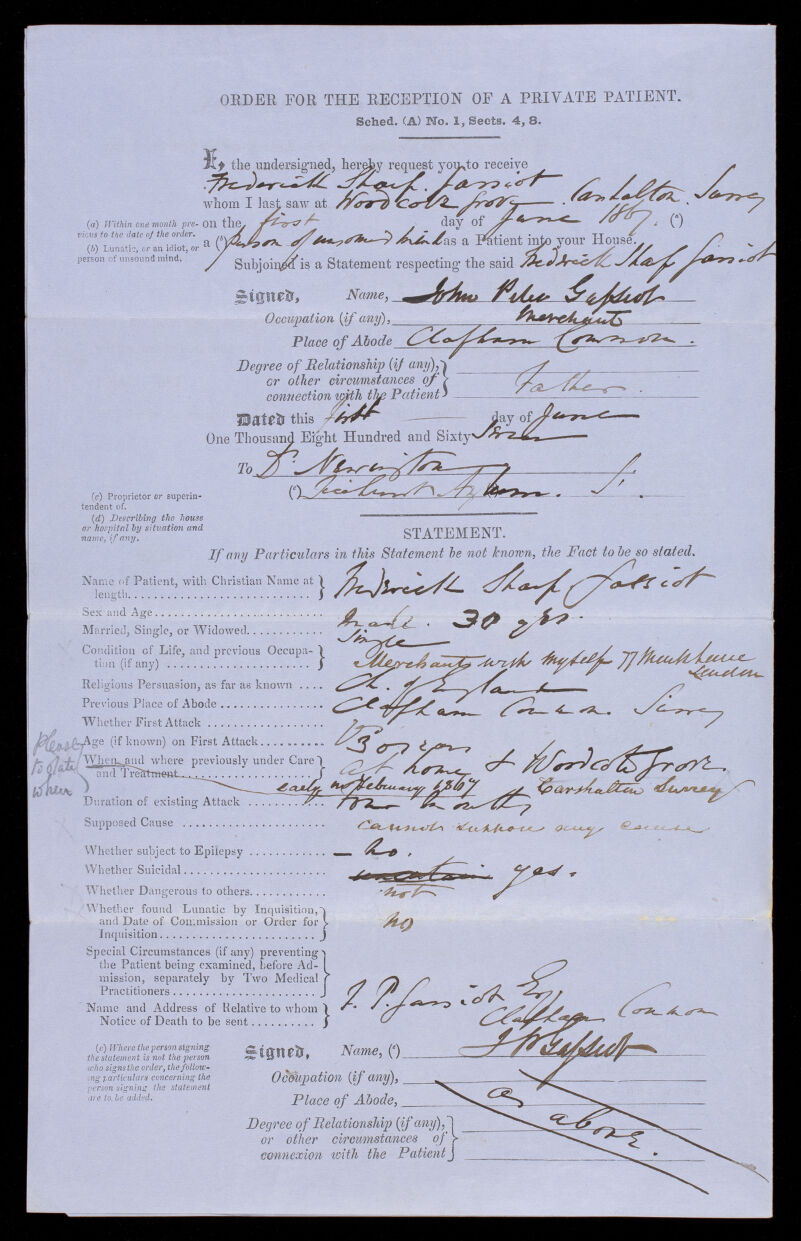 ORDER FOR THE RECEPTION OF A PRIVATE PATIENT.
Sched. (A) No. 1, Sects. 4, 8.
I, the undersigned, hereby request you to receive
Frederick Sharp Gassiot
whom I last saw at Woodcote Grove. Carshalton. Surrey
(a) Within one month pre-
vious to the date of the order.
on the first day of June 1867. (a)
(b) Lunatic, or an idiot, or
person of unsound mind.
a (b) person of unsound mind as a Patient into your House.
Subjoined is a Statement respecting the said Frederick Sharp Gassiot
Signed, Name, John Peter Gassiot
Occupation (if any), Merchant
Place of Abode Clapham Common.
Degree of Relationship (if any),
or other circumstances of
connection with the Patient
Father.
Dated this first day of June
One Thousand Eight Hundred and Sixty Seven
To Dr. Newington
(c) Ticehurst Asylum.
(c) Proprietor or superin-
tendent of.
(d) Describing the house
or hospital by situation and
name, if any.
STATEMENT.
If any Particulars in this Statement be not known, the Fact to be so stated.
Name of Patient, with Christian Name at
length
Frederick Sharp Gassiot
Sex and Age Male. 30 yrs.
Married, Single, or Widowed Single
Condition of Life, and previous Occupa-
tion (if any)
Merchant with myself 77 Mark Lane
London
Religious Persuasion, as far as known Ch. of England
Previous Place of Abode Clapham Common Surrey
Whether First Attack
Age (if known) on First Attack 30 years
Please
to state
when
When and where previously under Care
and Treatment
at home & Woodcote Grove.
Carshalton Surrey
early in February 1867
Duration of existing Attack four months
Supposed Cause cannot suppose any cause
Whether subject to Epilepsy – no.
Whether Suicidal uncertain yes.
Whether Dangerous to others not
Whether found Lunatic by Inquisition,
and Date of Commission or Order for
Inquisition
no
Special Circumstances (if any) preventing
the Patient being examined, before Ad-
mission, separately by Two Medical
Practitioners
Name and Address of Relative to whom
Notice of Death to be sent
J. P. Gassiot Esq
Clapham Common
(e) Where the person signing
the statement is not the person
who signs the order, the follow-
ing particulars concerning the
person signing the statement
are to be added.
Signed, Name, (e) J P Gassiot
Occupation (if any),
Place of Abode,
Degree of Relationship (if any),
or other circumstances of
connexion with the Patient
as above.